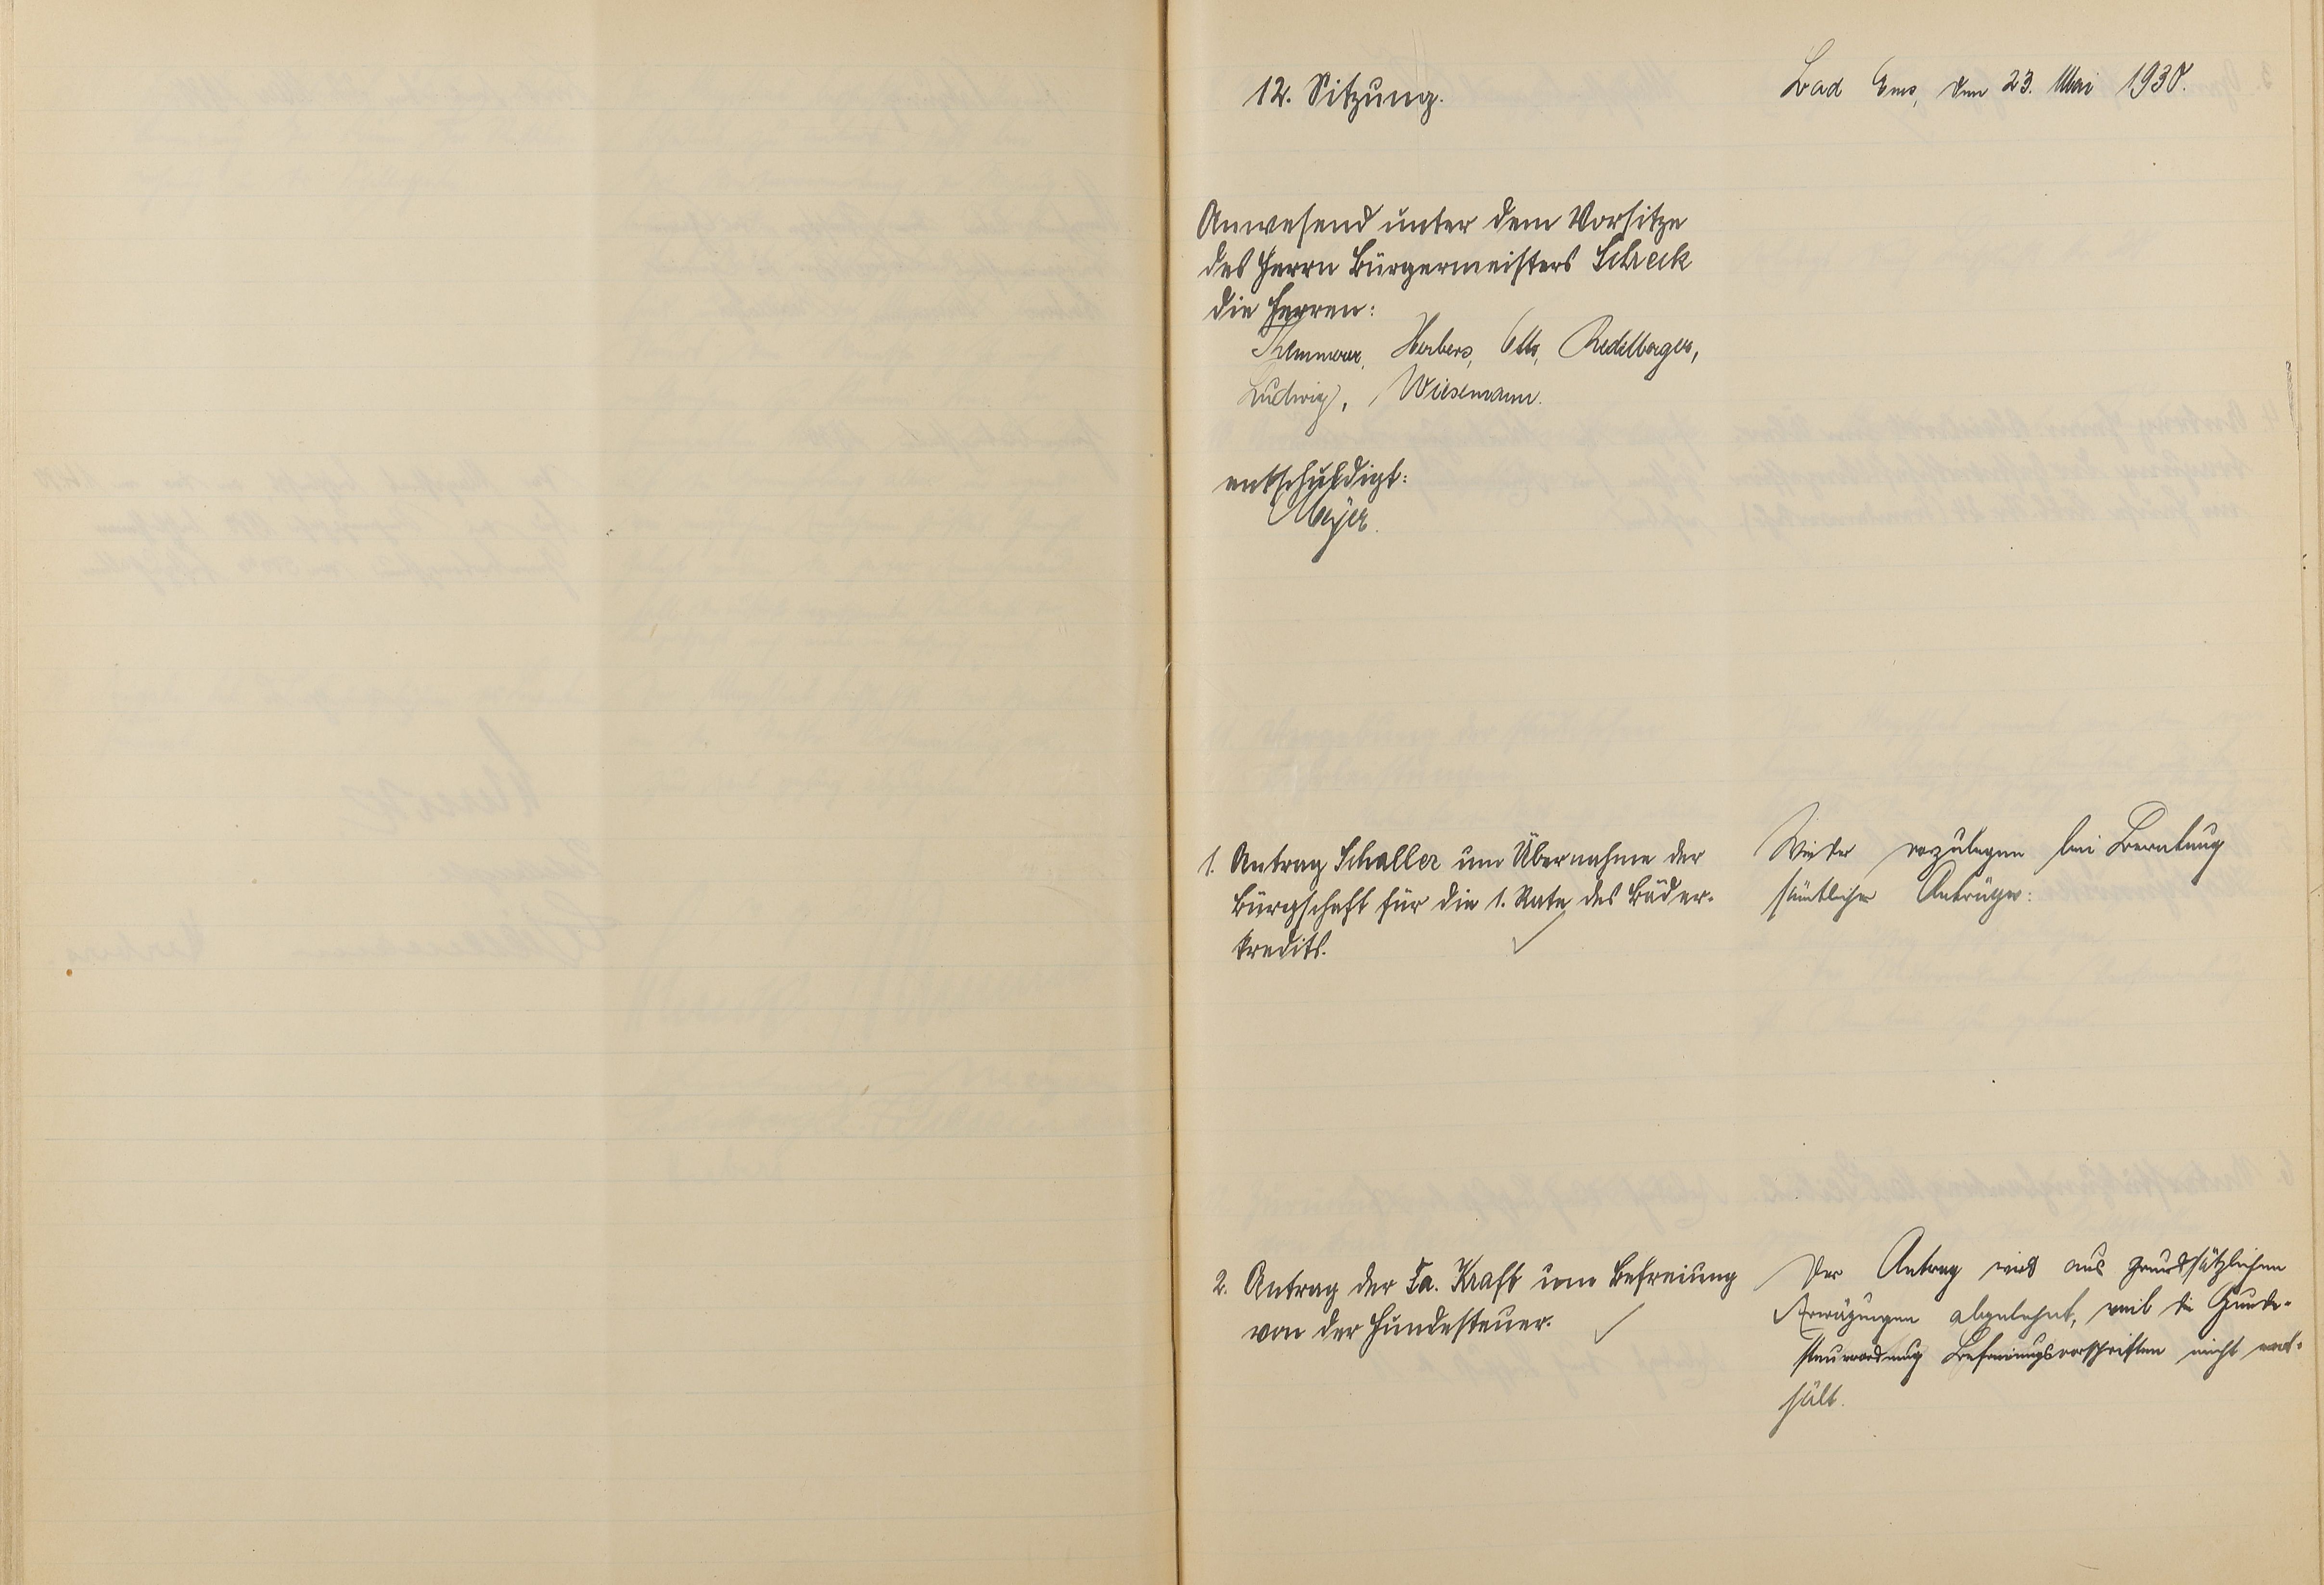 12. Sitzung.
Bad Ems, den 23. Mai 1930.
Anwesend unter dem Vorsitze
des Herrn Bürgermeisters Schreck
die Herren:
Herbers, Otto,
Ludwig, Wiesemann.
entschuldigt:
Meyer.
1. Antrag Schaller um Übernahme der
Bürgschaft für die 1. Rate des Bäder-
kredits.
Wieder vorzulegen bei Beratung
sämtlicher Anträge.
2. Antrag der Fa. Kraft um Befreiung
von der Hundesteuer.
Der Antrag wird aus grundsätzlichen
Erwägungen abgelehnt, weil die Hunde-
steuerordnung Befreiungsvorschriften nicht ent-
hält.